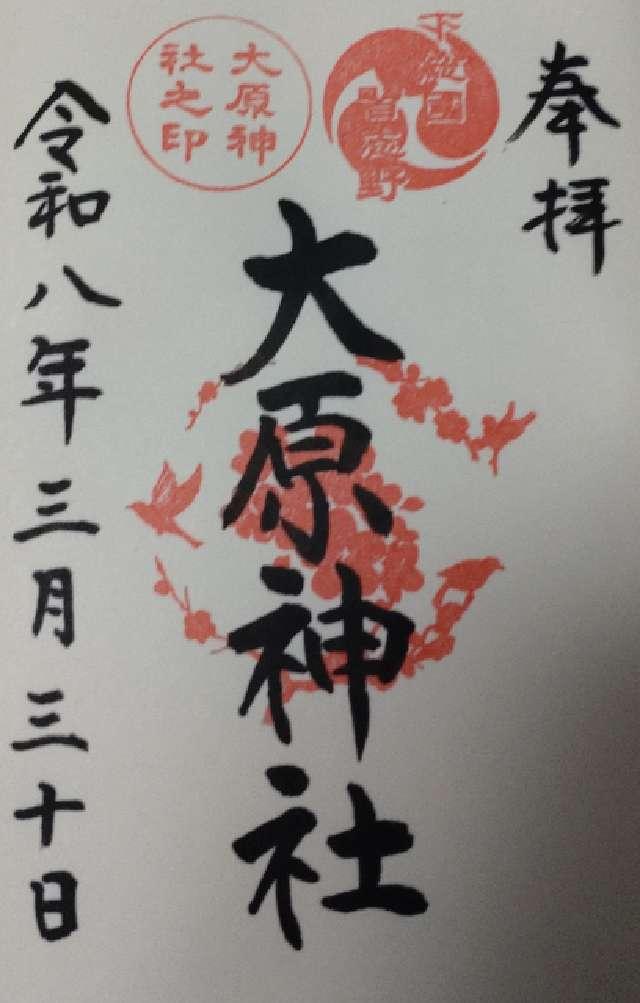 奉拝
下総國
習志野
大原神社之印
大原神社
令和八年三月三十日